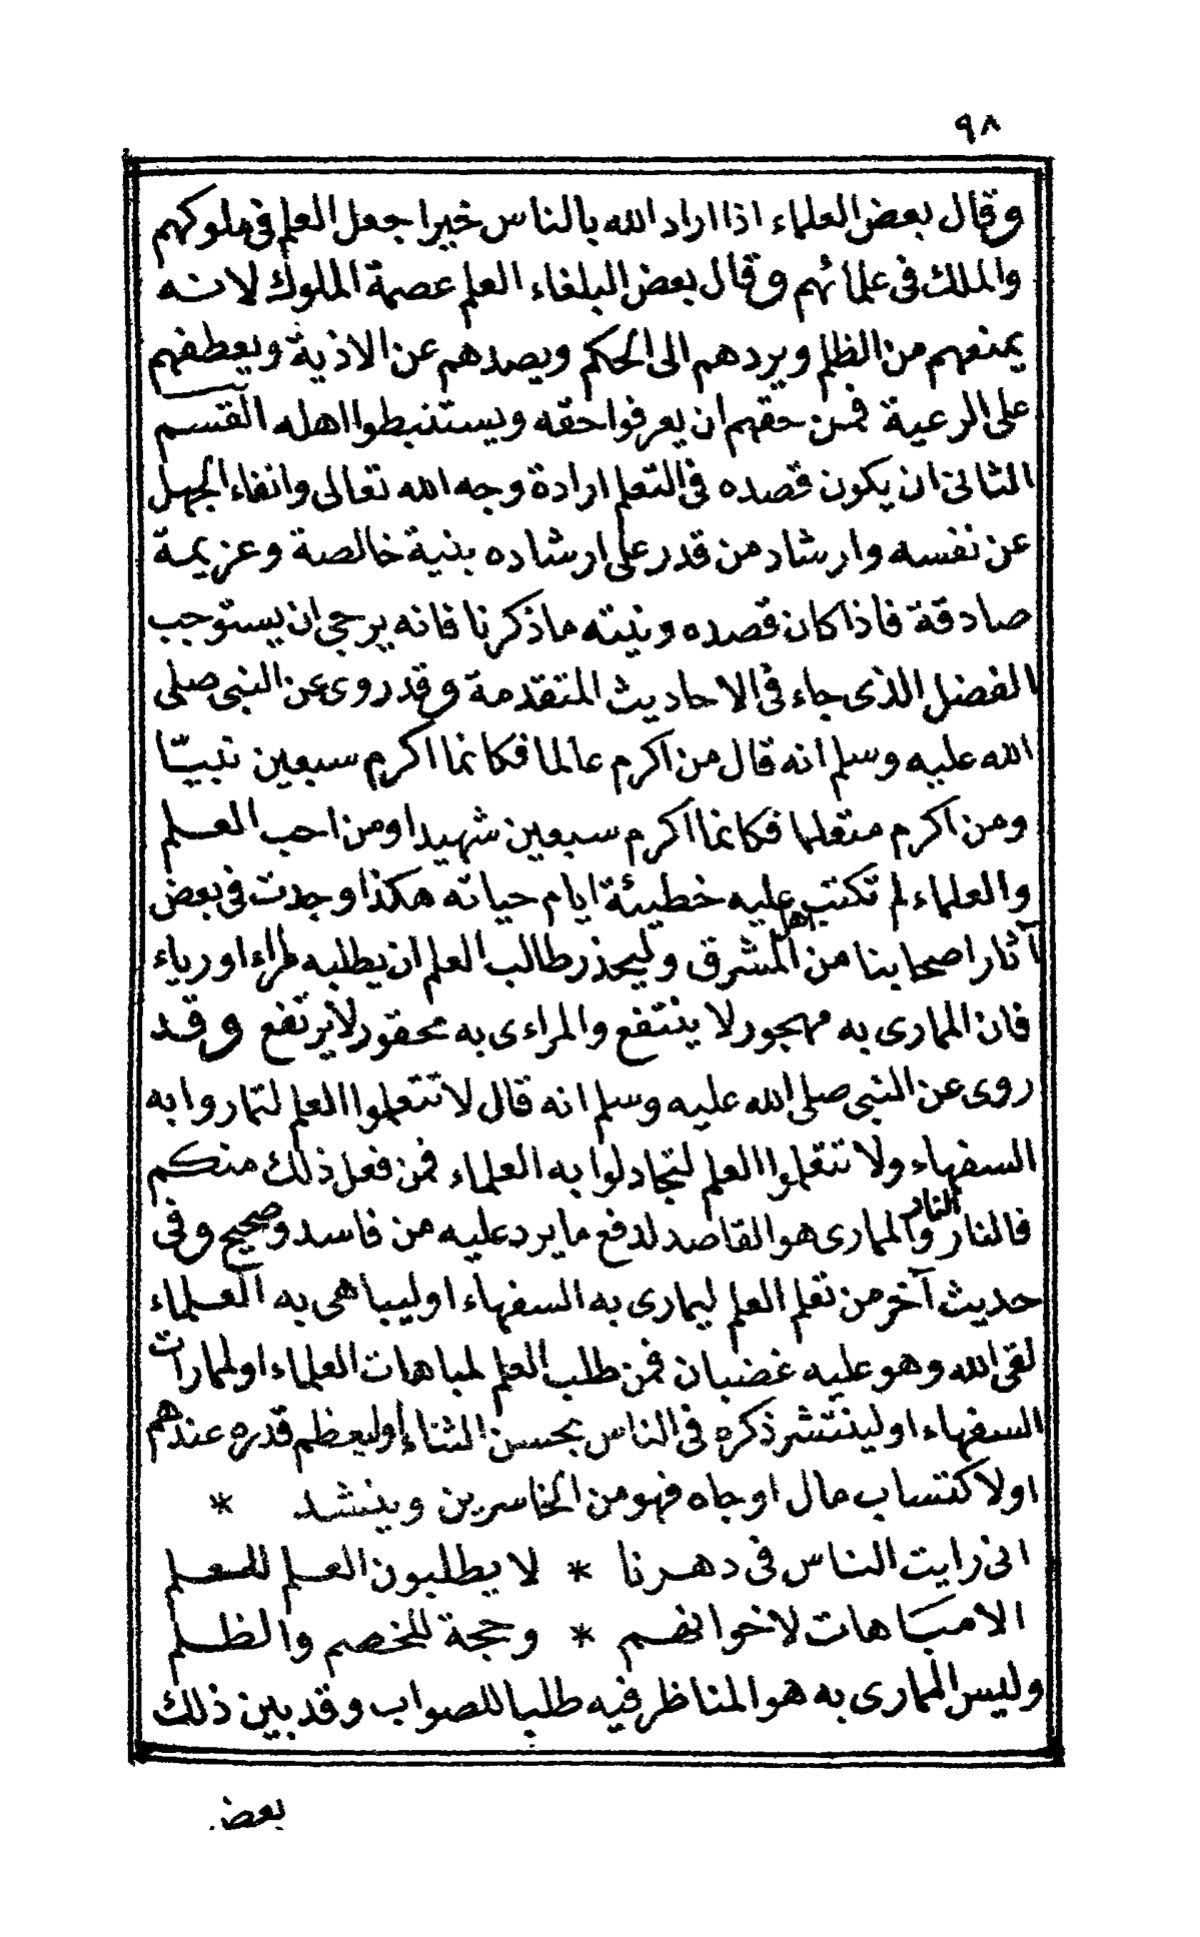 ٩٨
وقال بعض العلماء اذا اراد الله بالناس خيرا جعل العلم فى ملوكهم
والملك فى علمائهم وقال بعض البلغاء العلم عصمة الملوك لانه
يمنعهم من الظلم ويردهم الى الحكم ويصدهم عن الاذية ويعطفهم
على الرعية فمن حقهم ان يعرفوا حقه ويستنبطوا اهله القسم
الثانى ان يكون قصده فى التعلم ارادة وجه الله تعالى وانفاء الجهل
عن نفسه وارشاد من قدر على ارشاده بنية خالصة وعزيمة
صادقة فاذا كان قصده ونيته ما ذكرنا فانه يرجى ان يستوجب
الفضل الذى جاء فى الاحاديث المتقدمة وقد روى عن النبى صلى
الله عليه وسلم انه قال من اكرم عالما فكانما اكرم سبعين نبيّا
ومن اكرم متعلما فكانما اكرم سبعين شهيدا ومن احب العلم
والعلماء لم تكتب عليه خطيئة ايام حياته هكذا وجدت فى بعض
آثار اصحابنا من اهل المشرق وليحذر طالب العلم ان يطلبه لمراء او رياء
فان الممارى به مهجور لا ينتفع والمراءى به محقور لا يرتفع وقد
روى عن النبى صلى الله عليه وسلم انه قال لا تتعلموا العلم لتماروا به
السفهاء ولا تتعلموا العلم لتجادلوا به العلماء فمن فعل ذلك منكم
فالنار النار والممارى هو القاصد لدفع ما يرد عليه من فاسد وصحيح وفى
حديث آخر من تعلم العلم ليمارى به السفهاء او ليباهى به العلماء
لقى الله وهو عليه غضبان فمن طلب العلم لمباهات العلماء او لمارات
السفهاء او لينتشر ذكره فى الناس بحسن الثناء او ليعظم قدره عندهم
او لاكتساب مال او جاه فهو من الخاسرين وينشد *
انى رايت الناس فى دهرنا * لا يطلبون العلم للعلم
الا مباهات لاخوانهم * وحجة للخصم والظلم
وليس الممارى به هو المناظر فيه طلبا للصواب وقد بين ذلك
بعض